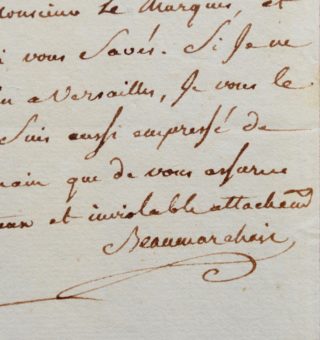 Monsieur Le Marquis, et
vous Savés. Si Je ne
a Versailles, Je vous le
Suis aussi empressé de
que de vous assurer
et inviolable attachemt
Beaumarchais